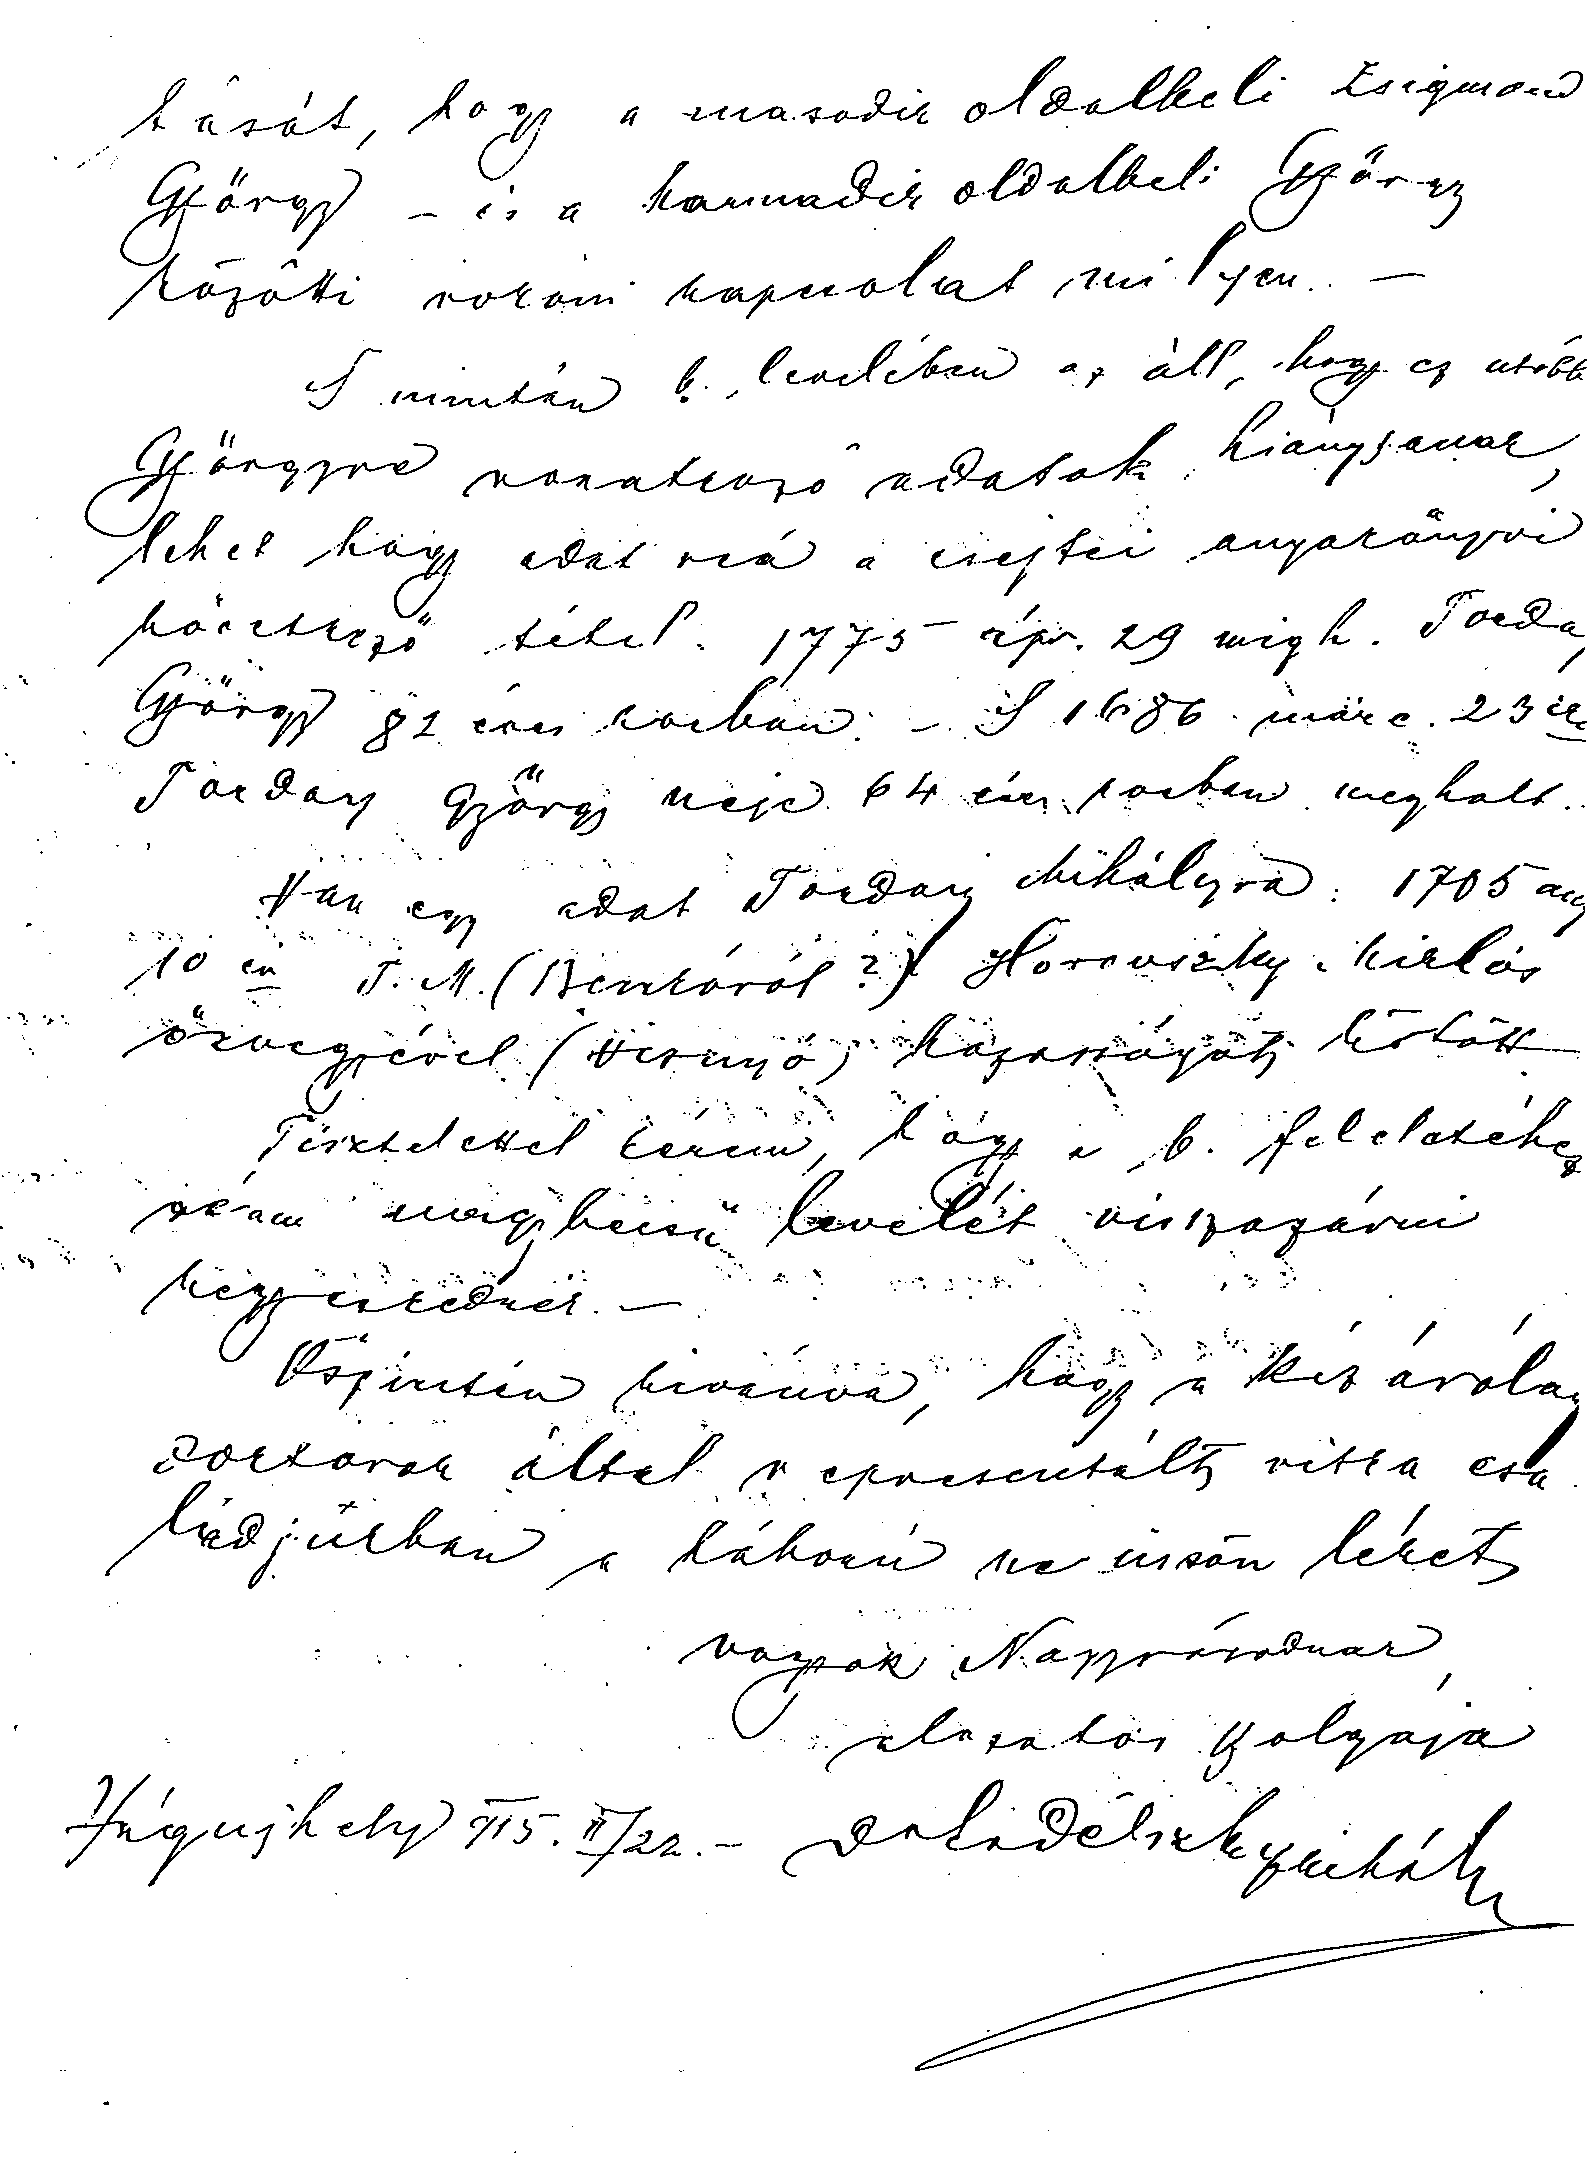 tását, hogy a masodik oldalbeli Zsigmond
György – és a harmadik oldalbeli György
közötti rokoni kapcsolat milyen. –
S miután b. levelében az áll, hogy ez utóbb
Györgyre vonatkozó adatok hiányzanak,
lehet hogy adat reá a csejtei anyakönyvi
következő tétel. 1775 ápr. 29 megh. Torday
György 82 éves korban. – S 1686 márc. 23 án
Torday György neje 64 éves korban meghalt.
Van egy adat Torday Mihályra: 1705 aug
10 én T. M. (Benkóról?) Horovszky Miklós
özvegyével (Visnyó) házasságot kötött
Tisztelettel kérem, hogy a b. feleletéhez
nagybecsü levelét visszazárni
kegyeskednék. –
Őszintén kivánva, hogy a két
doctorok által representált ritka csa
ládjukban a háború ne üssön léket,
vagyok Nagyságodnak,
alázatos szolgája
Vágujhely 915. II/22. –